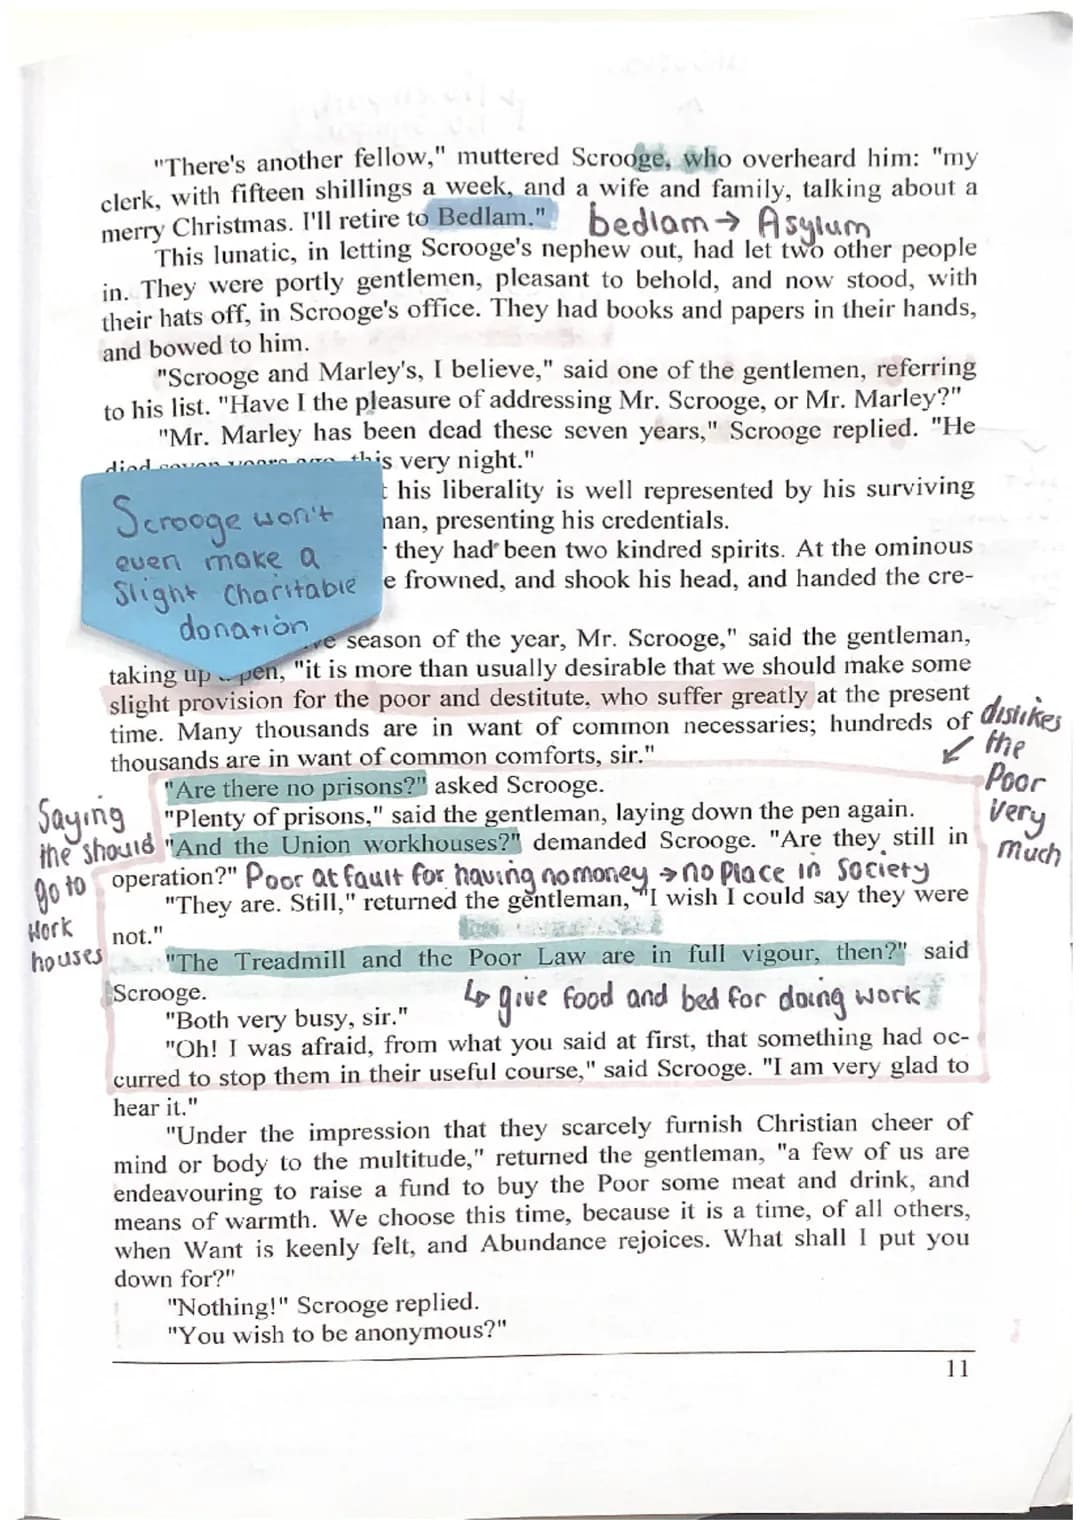 "There's another fellow," muttered Scrooge, who overheard him: "my
clerk, with fifteen shillings a week, and a wife and family, talking about a
merry Christmas. I'll retire to Bedlam."
bedlam → Asylum
This lunatic, in letting Scrooge's nephew out, had let two other people
in. They were portly gentlemen, pleasant to behold, and now stood, with
their hats off, in Scrooge's office. They had books and papers in their hands,
and bowed to him.
"Scrooge and Marley's, I believe," said one of the gentlemen, referring
to his list. "Have I the pleasure of addressing Mr. Scrooge, or Mr. Marley?"
"Mr. Marley has been dead these seven years," Scrooge replied. "He
died seven years ago, this very night."
his liberality is well represented by his surviving
man, presenting his credentials.
they had been two kindred spirits. At the ominous
frowned, and shook his head, and handed the cre-
Scrooge won't
even make a
Slight Charitable
donation
season of the year, Mr. Scrooge," said the gentleman,
taking up pen, "it is more than usually desirable that we should make some
slight provision for the poor and destitute, who suffer greatly at the present
time. Many thousands are in want of common necessaries; hundreds of
thousands are in want of common comforts, sir."
dislikes
↙ the
Poor
very
much
"Are there no prisons?" asked Scrooge.
"Plenty of prisons," said the gentleman, laying down the pen again.
"And the Union workhouses?" demanded Scrooge. "Are they still in
operation?"
Poor at fault for having no money → no place in Society
Saying
the should
go to
Work
houses
"They are. Still," returned the gentleman, "I wish I could say they were
not."
"The Treadmill and the Poor Law are in full vigour, then?" said
Scrooge.
↳ give food and bed for doing work
"Both very busy, sir."
"Oh! I was afraid, from what you said at first, that something had oc-
curred to stop them in their useful course," said Scrooge. "I am very glad to
hear it."
"Under the impression that they scarcely furnish Christian cheer of
mind or body to the multitude," returned the gentleman, "a few of us are
endeavouring to raise a fund to buy the Poor some meat and drink, and
means of warmth. We choose this time, because it is a time, of all others,
when Want is keenly felt, and Abundance rejoices. What shall I put you
down for?"
"Nothing!" Scrooge replied.
"You wish to be anonymous?"
11